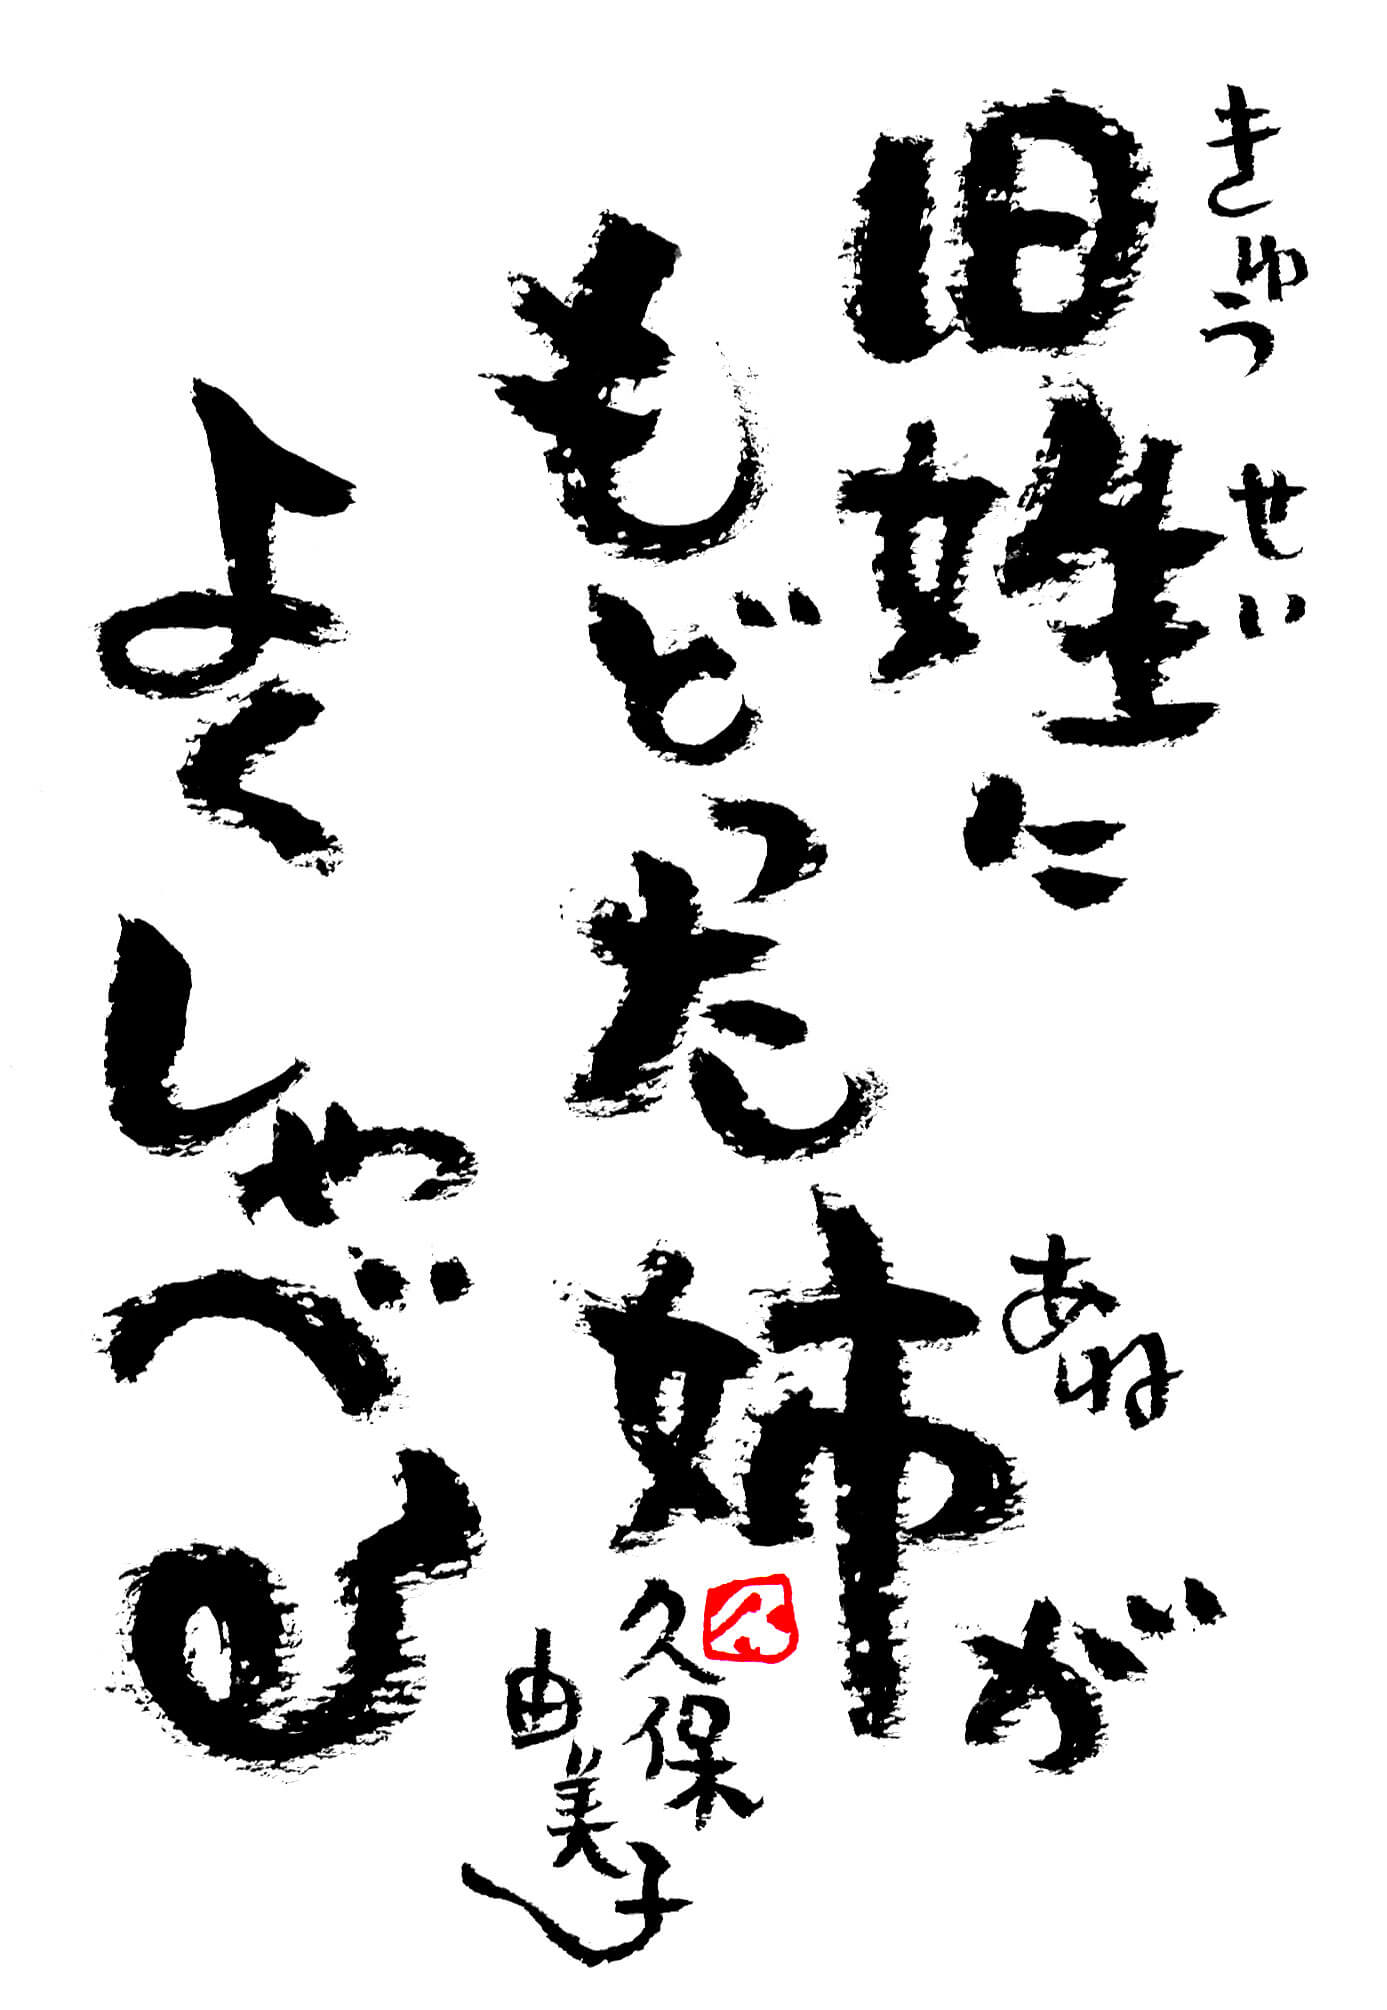 旧姓に
きゅうせい
もどった姉が
あね
よくしゃべる
久保
由美子
久